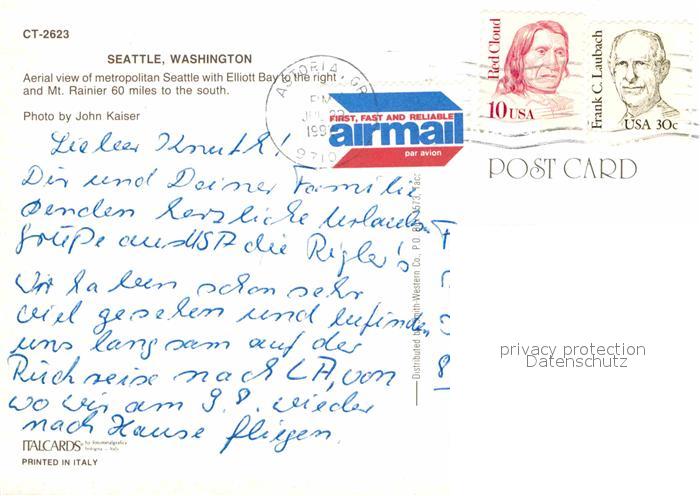 CT-2623
SEATTLE, WASHINGTON
Aerial view of metropolitan Seattle with Elliott Bay to the right
and Mt. Rainier 60 miles to the south.
Photo by John Kaiser
ASTORIA, OR
PM
97103
FIRST, FAST AND RELIABLE
airmail
par avion
Red Cloud
10 USA
Frank C. Laubach
USA 30c
POST CARD
Lieber Knuth!
Dir und Deiner Familie
senden herzliche Urlaubs-
grüße aus USA die Rigler's
Wir haben schon sehr
viel gesehen und befinden
uns langsam auf der
Rückreise nach LA, von
wo wir am 9.8. wieder
nach Hause fliegen.
Distributed by Smith-Western Co., P.O. Box
privacy protection
Datenschutz
ITALCARDS by fotometalgrafica
bologna - Italy
PRINTED IN ITALY